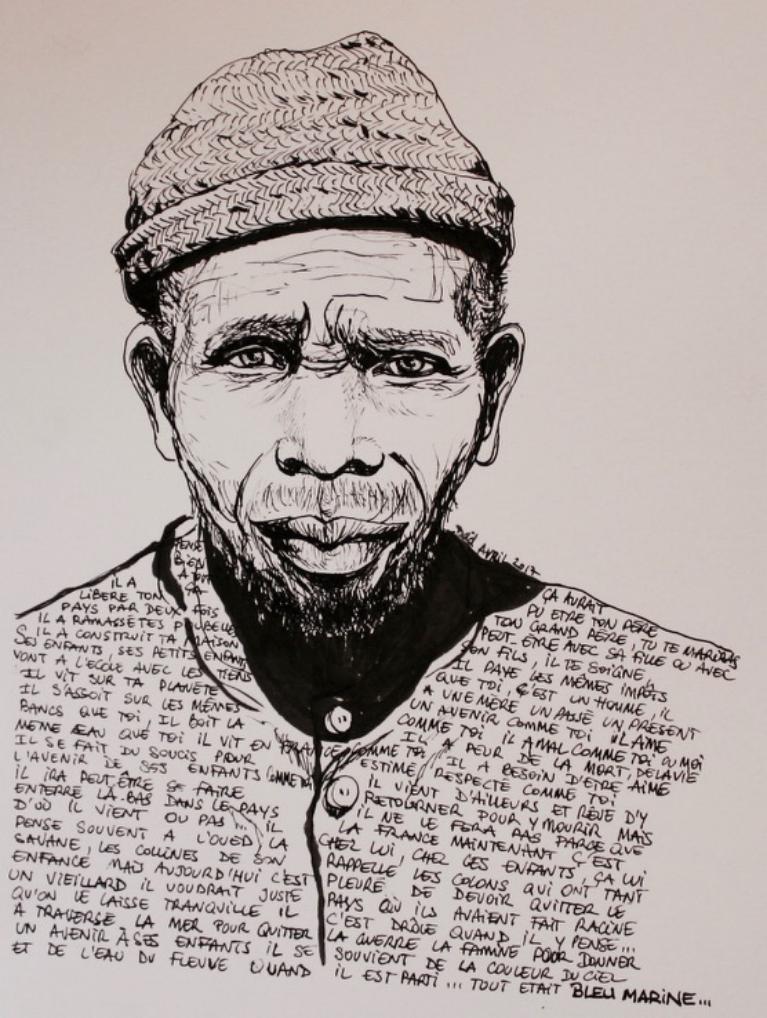 PENSE
BIEN
A TOUT
IL A ÇA
LIBERE TON
PAYS PAR DEUX FOIS
IL A RAMASSÉ TES POUBELLES
IL A CONSTRUIT TA MAISON
SES ENFANTS, SES PETITS ENFANTS
VONT A L'ECOLE AVEC LES TIENS
IL VIT SUR TA PLANÈTE
IL S'ASSOIT SUR LES MÊMES
BANCS QUE TOI, IL BOIT LA
MEME EAU QUE TOI IL VIT EN FRANCE COMME TOI
IL SE FAIT DU SOUCIS POUR
L'AVENIR DE SES ENFANTS COMME TOI
IL IRA PEUT-ÊTRE SE FAIRE
ENTERRE LA-BAS DANS LE PAYS
D'OÙ IL VIENT OU PAS... IL
PENSE SOUVENT A L'OUED, LA
SAVANE, LES COLLINES DE SON
ENFANCE MAIS AUJOURD'HUI C'EST
UN VIEILLARD IL VOUDRAIT JUSTE
QU'ON LE LAISSE TRANQUILLE IL
A TRAVERSE LA MER POUR QUITTER
UN AVENIR À SES ENFANTS IL SE
ET DE L'EAU DU FLEUVE QUAND
AVRIL 2017
ÇA AURAIT
PU ETRE TON PÈRE
TON GRAND PÈRE, TU TE MARIERAS
PEUT-ÊTRE AVEC SA FILLE OU AVEC
SON FILS, IL TE SOIGNE,
IL PAYE LES MÊMES IMPÔTS
QUE TOI, C'EST UN HOMME, IL
A UNE MÈRE UN PASSÉ UN PRÉSENT
UN AVENIR COMME TOI IL AIME
COMME TOI IL A MAL COMME TOI OU MOI
IL A PEUR DE LA MORT, DE LA VIE
IL A BESOIN D'ETRE AIMÉ
ESTIMÉ, RESPECTÉ COMME TOI
IL VIENT D'AILLEURS ET RÊVE D'Y
RETOURNER POUR Y MOURIR MAIS
IL NE LE FERA PAS PARCE QUE
LA FRANCE MAINTENANT C'EST
CHEZ LUI, CHEZ SES ENFANTS, ÇA LUI
RAPPELLE LES COLONS QUI ONT TANT
PLEURÉ DE DEVOIR QUITTER LE
PAYS OÙ ILS AVAIENT FAIT RACINE
C'EST DRÔLE QUAND IL Y PENSE...
LA GUERRE LA FAMINE POUR DONNER
SOUVIENT DE LA COULEUR DU CIEL
IL EST PARTI... TOUT ETAIT BLEU MARINE...